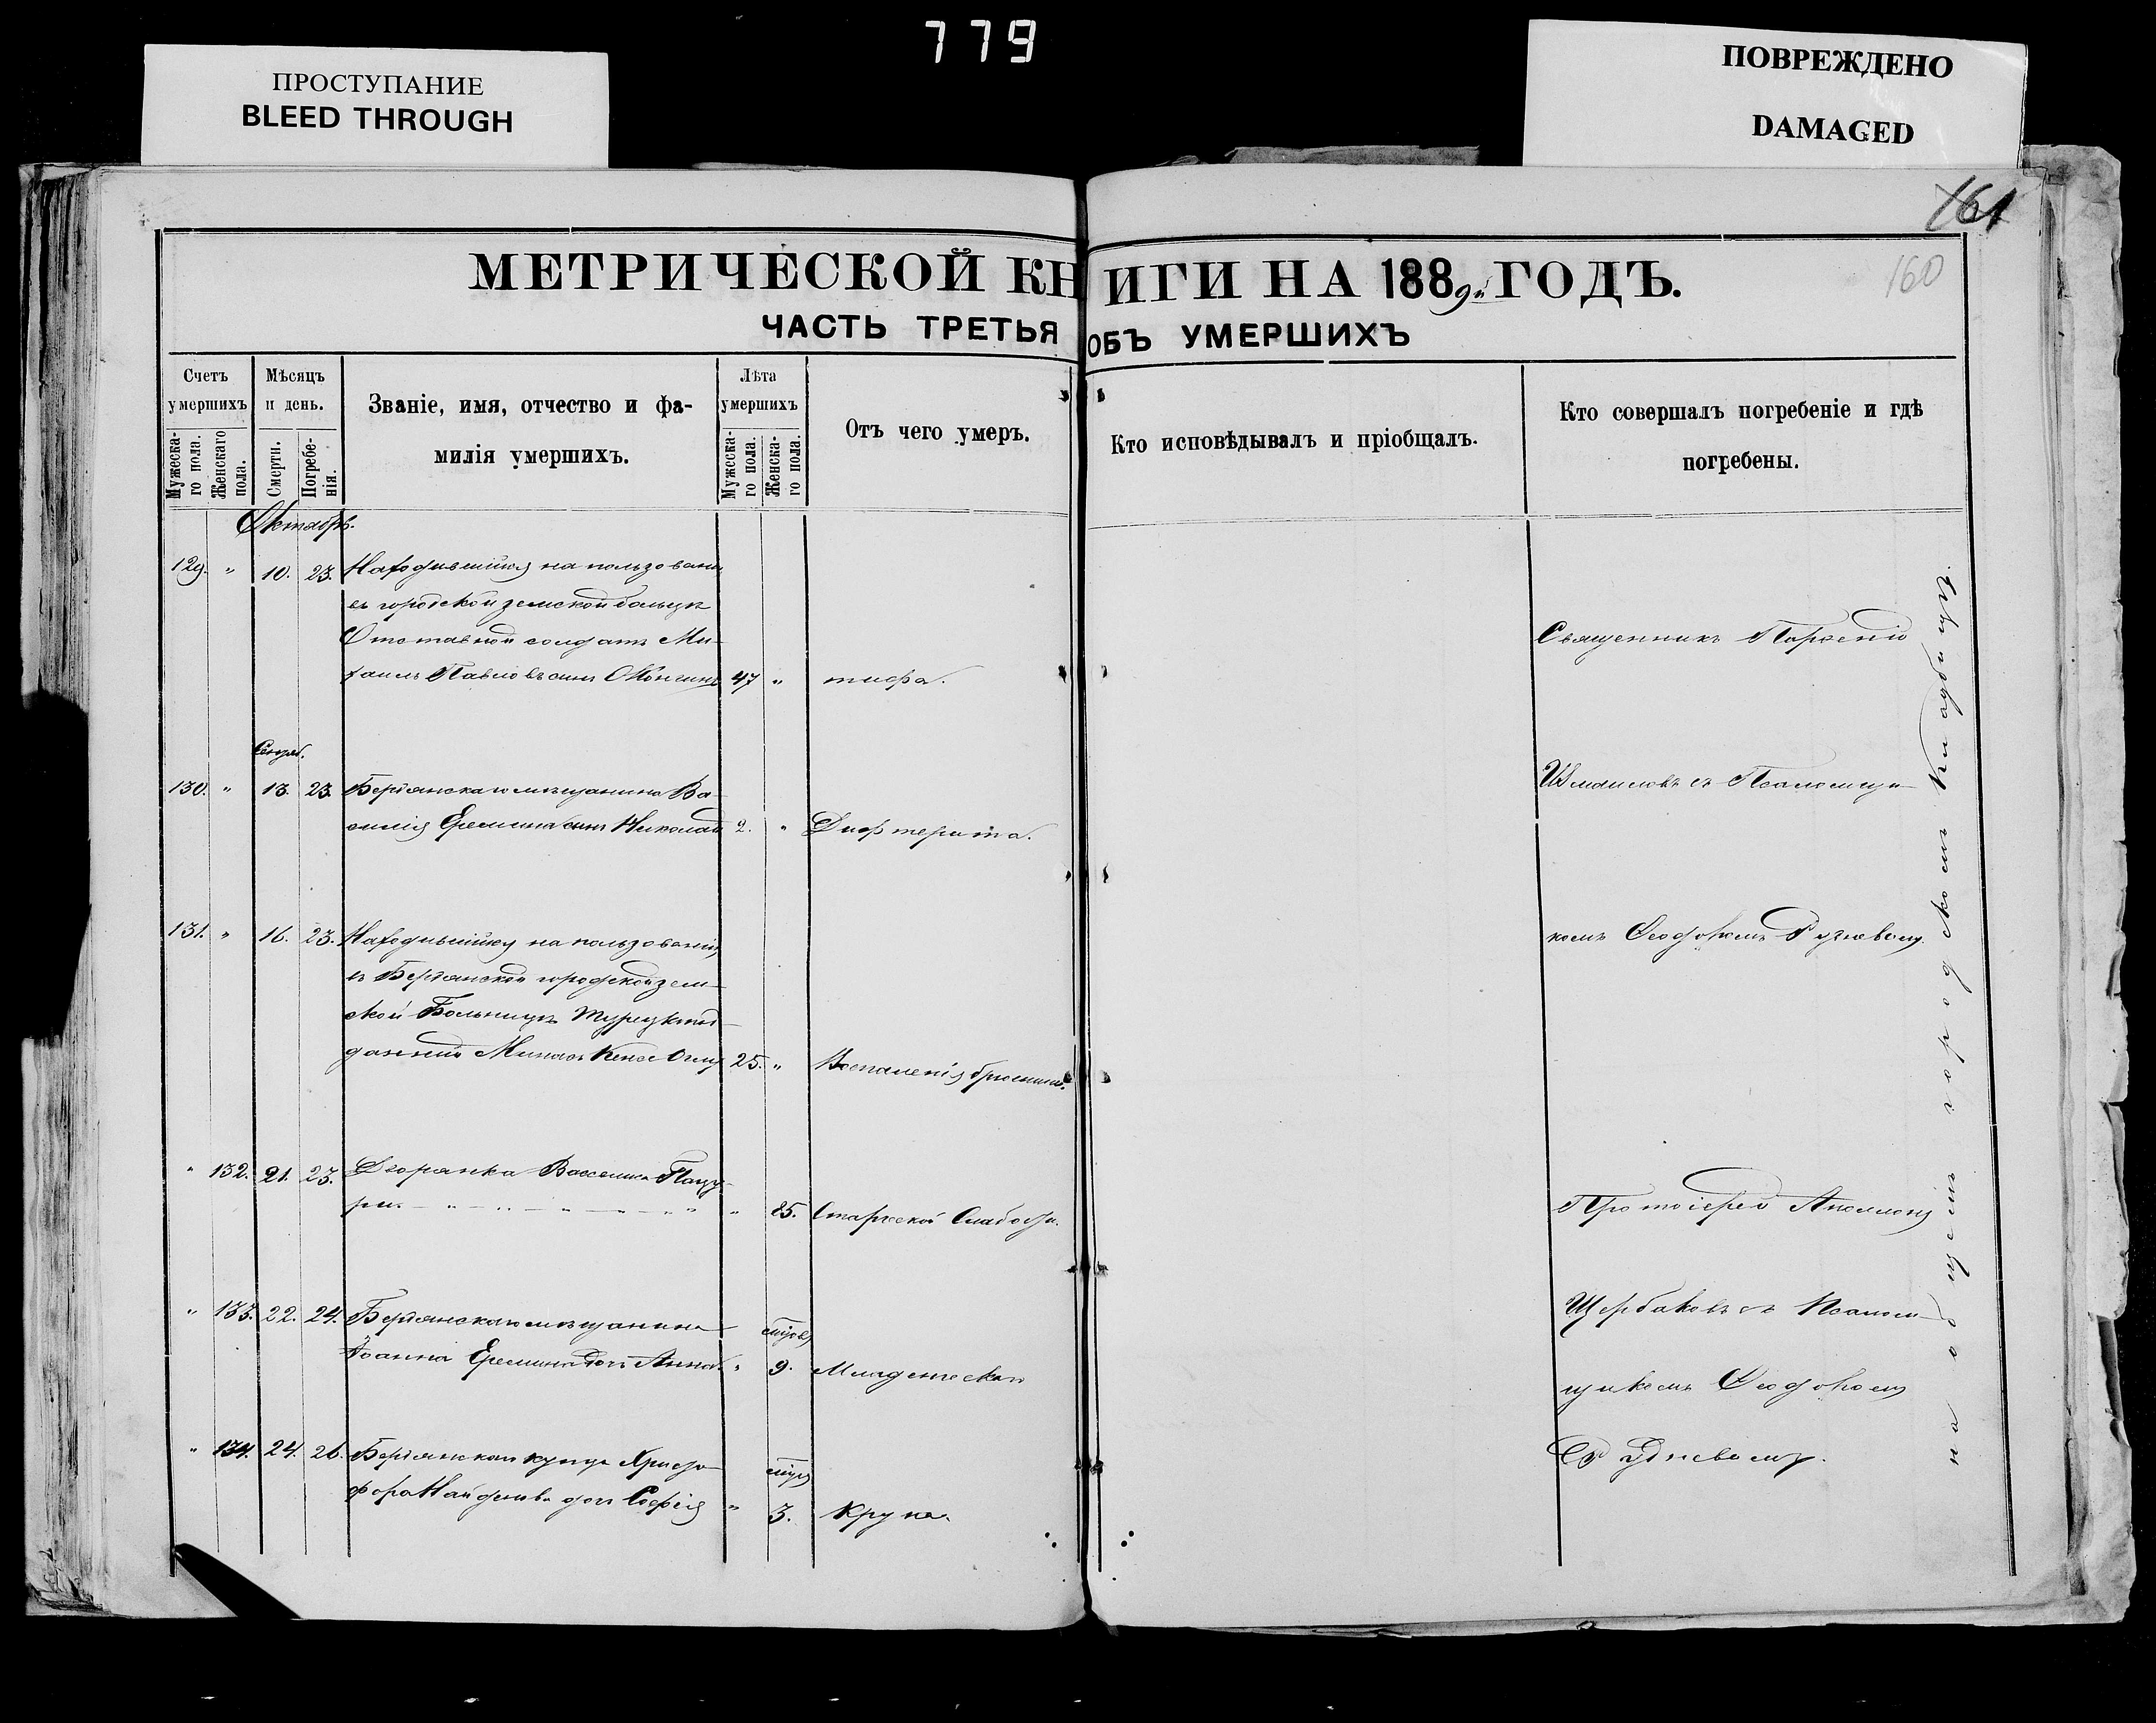 779
ПРОСТУПАНИЕ
BLEED THROUGH
ПОВРЕЖДЕНО
DAMAGED
161
160
МЕТРИЧЕСКОЙ КНИГИ НА 1889й ГОДЪ.
ЧАСТЬ ТРЕТЬЯ ОБЪ УМЕРШИХЪ
Счетъ умершихъ
Мужеска-го пола.
Женскаго пола.
Мѣсяцъ и день.
Смерти.
Погребе-нія.
Званіе, имя, отчество и фа-
милія умершихъ.
Лѣта умершихъ
Мужеска-го пола.
Женска-го пола.
Отъ чего умеръ.
Кто исповѣдывалъ и пріобщалъ.
Кто совершалъ погребеніе и гдѣ
погребены.
Октябрь.
129. " 10. 23. Находившійся на пользовани
въ городской земской больцѣ
Отставной солдатъ Ми-
хаилъ Павловъ сынъ 47 " тифа.
Священникъ Парфеній
130. " 13. 23. Бердянскаго мѣщанина Ва-
силія Еремина сынъ Николай 2. " Дифтерита.
Измаиловъ съ Псаломщи-
131. " 16. 23. Находившійся на пользованіи
въ Бердянской городской зем-
ской Больницѣ Турецкій под-
данный Минасъ 25. " Воспаленія брюшины.
комъ Ѳеодоромъ Рудневымъ.
" 132. 21. 23. Дворянка
" 85. Старческой Слабости.
Протоіерей Аполлонъ
" 133. 22. 24. Бердянскаго мѣщанина
Іоанна Еремина дочь Анна " 9. Младенческой
Щербаковъ съ Псалом-
щикомъ Ѳеодоромъ
" 134. 24. 26. Бердянскаго купца Христо-
фора Найденова дочь Софія " 3. Крупа.
Рудневымъ.
на общемъ городскомъ кладбищѣ.